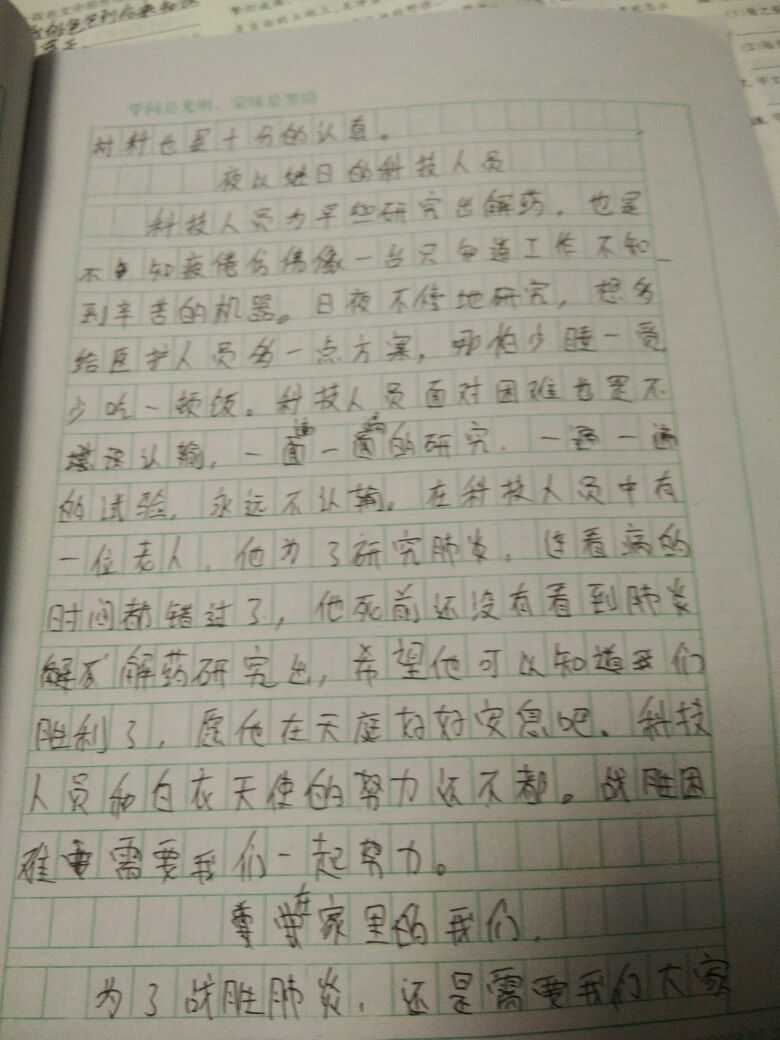 学问是光明，蒙昧是黑暗
对料也是十分的认真。
夜以继日的科技人员
科技人员为早些研究出解药，也是
不知疲倦的偆像一台只知道工作不知
到辛苦的机器。日夜不停地研究，想多
给医护人员多一点方案，哪怕少睡一觉
少吃一顿饭。科技人员面对困难也是不
认输，一遍一遍的研究，一遍一遍
的试验，永远不认输。在科技人员中有
一位老人，他为了研究肺炎，连看病的
时间都错过了，他死前还没有看到肺炎
解药研究出，希望他可以知道我们
胜利了，愿他在天庭好好安息吧。科技
人员和白衣天使的努力还不都。战胜困
难需要我们一起努力。
在家里的我们，
为了战胜肺炎，还是需要我们大家